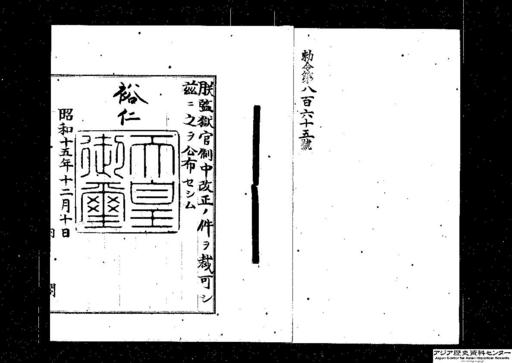 勅令第八百六十五號
朕監獄官制中改正ノ件ヲ裁可シ
茲ニ之ヲ公布セシム
裕仁
天皇御璽
昭和十五年十二月十日
内閣
アジア歴史資料センター
Japan Center for Asian Historical Records